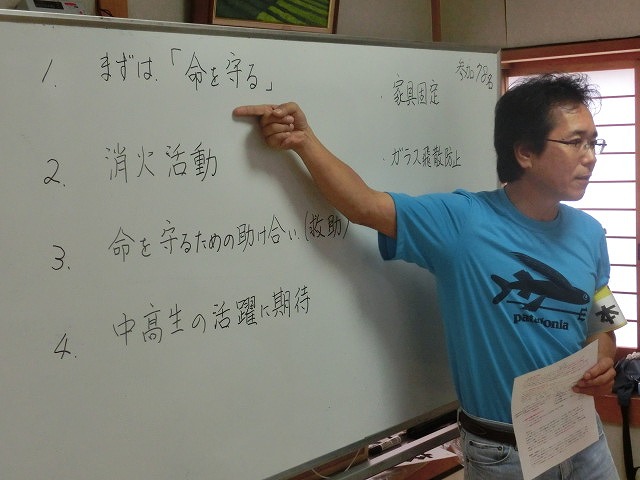 1. まずは、「命を守る」
2. 消火活動
3. 命を守るための助け合い(救助)
4. 中高生の活躍に期待
・家具固定
・ガラス飛散防止
patagonia
本